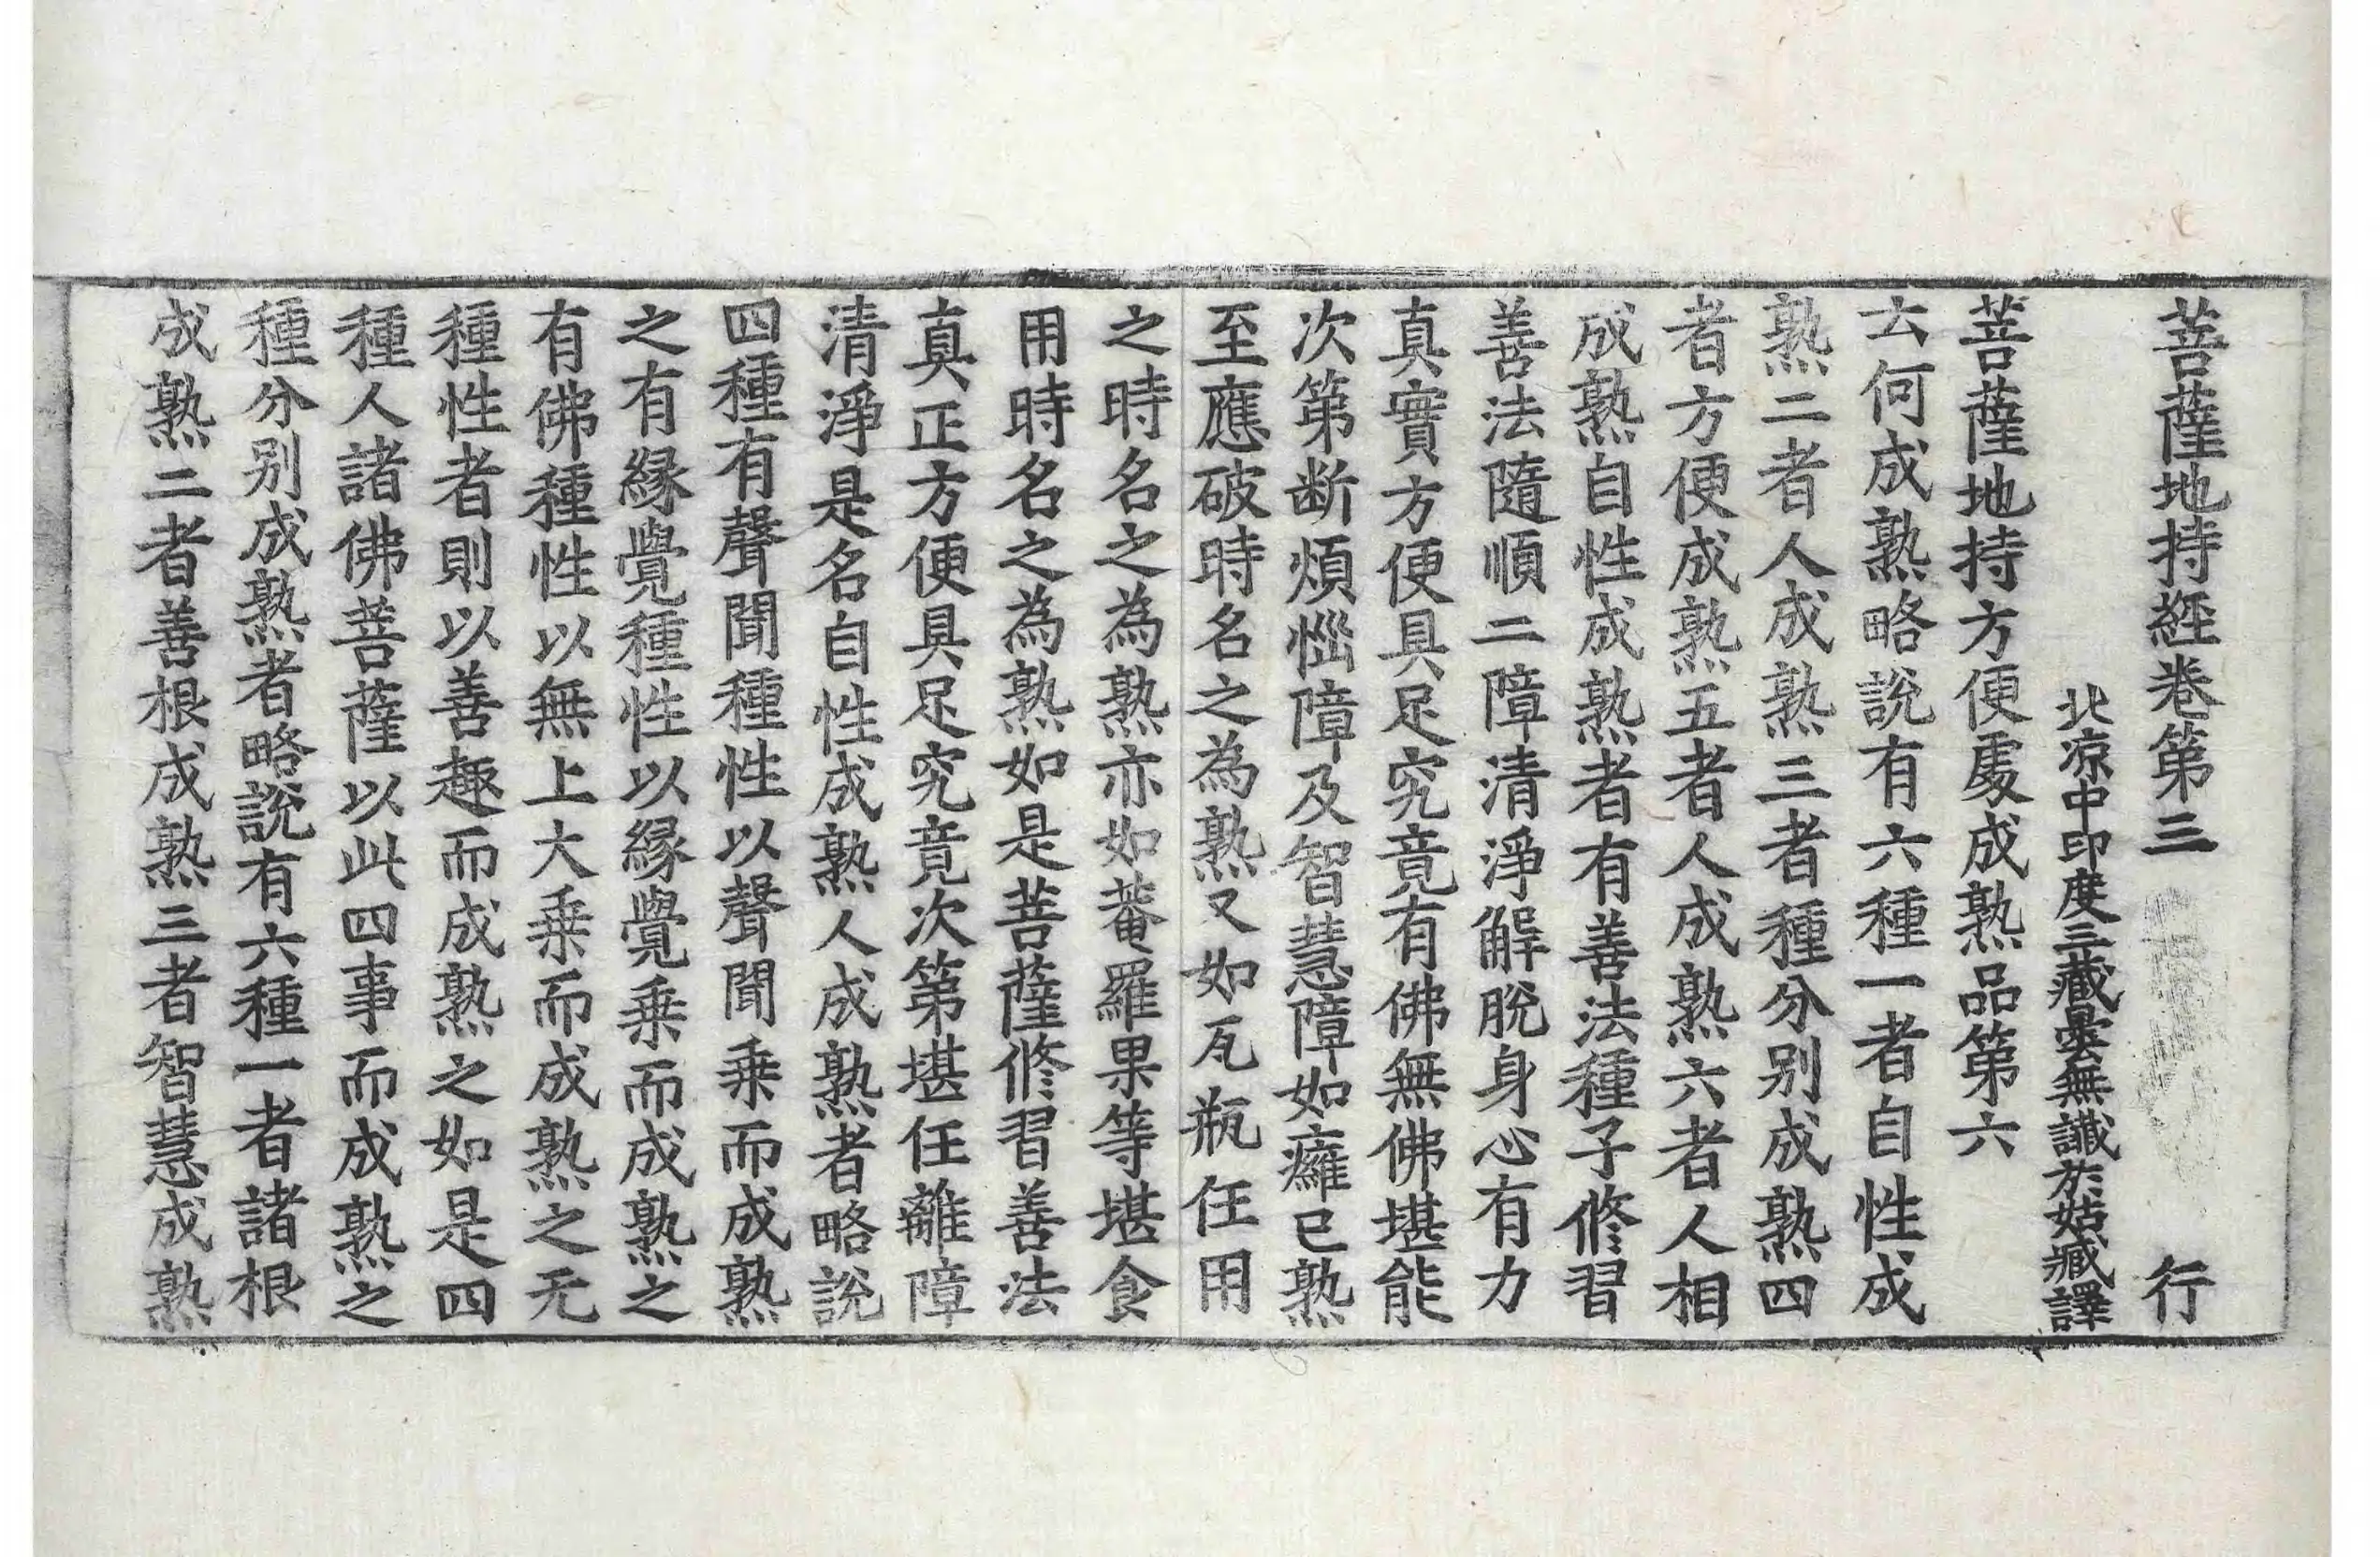 菩薩地持經卷第三 行
北涼中印度三藏曇無讖於姑臧譯
菩薩地持方便處成熟品第六
云何成熟略說有六種一者自性成
熟二者人成熟三者種分别成熟四
者方便成熟五者人成熟六者人相
成熟自性成熟者有善法種子修習
善法隨順二障清淨解脫身心有力
真實方便具足究竟有佛無佛堪能
次第斷煩惱障及智慧障如癰已熟
至應破時名之為熟又如瓦瓶任用
之時名之為熟亦如菴羅果等堪食
用時名之為熟如是菩薩修習善法
真正方便具足究竟次第堪任離障
清淨是名自性成熟人成熟者略說
四種有聲聞種性以聲聞乗而成熟
之有緣覺種性以緣覺乗而成熟之
有佛種性以無上大乗而成熟之无
種性者則以善趣而成熟之如是四
種人諸佛菩薩以此四事而成熟之
種分别成熟者略說有六種一者諸根
成熟二者善根成熟三者智慧成熟